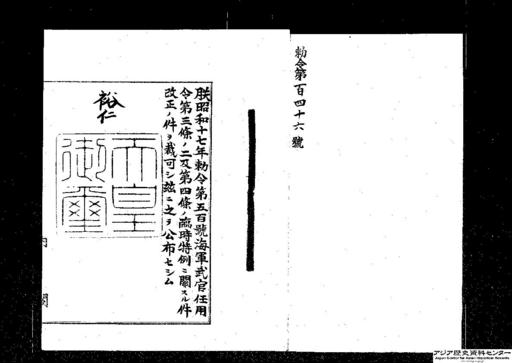 勅令第百四十六號
朕昭和十七年勅令第五百號海軍武官任用
令第三條ノ二及第四條ノ臨時特例ニ關スル件
改正ノ件ヲ裁可シ茲ニ之ヲ公布セシム
裕仁
天皇
御璽
内閣
アジア歴史資料センター
Japan Center for Asian Historical Records